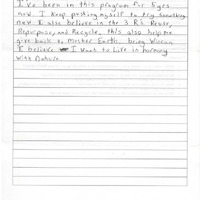 I've been in this program for 5yrs
now. I keep pushing myself to try something
new. I also believe in the 3 R's. Reuse,
Repurpose, and Recycle, this also help me
give back to Mother Earth. being Wiccan
I believe I want to Life in harmony
with Nature.